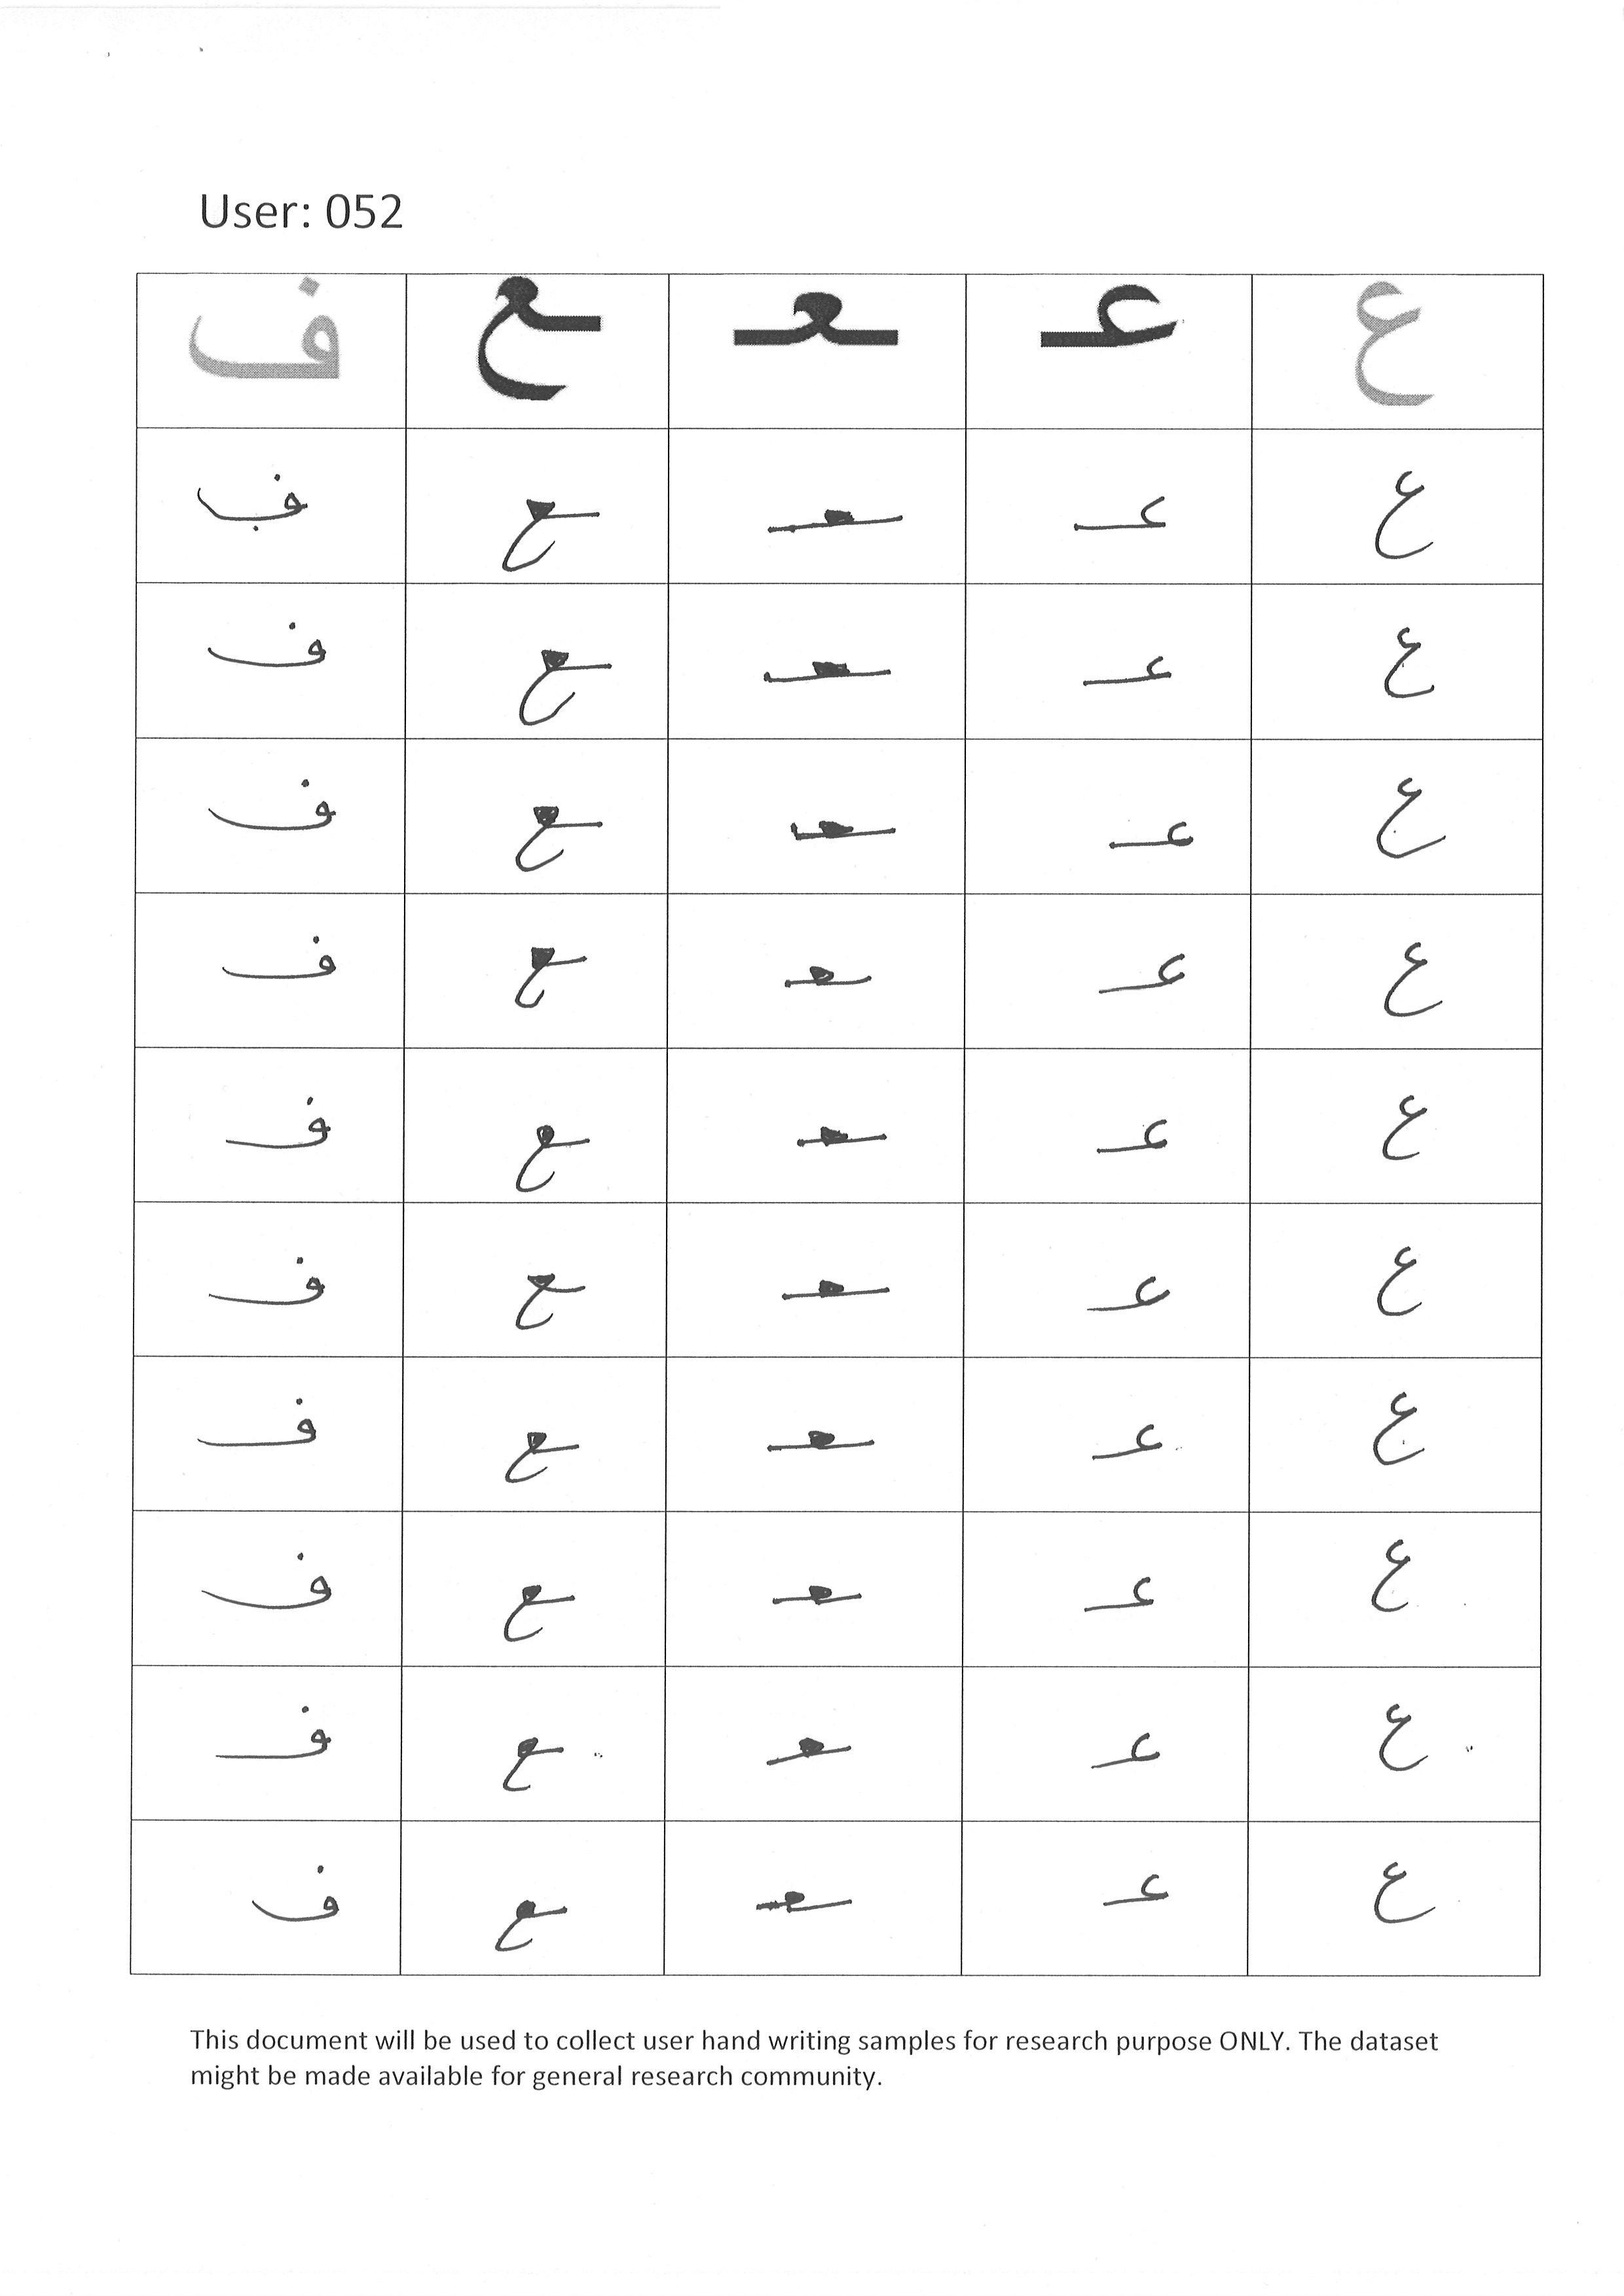 User: 052
ع عـ ـعـ ـع ف
ع عـ ـعـ ـع ف
ع عـ ـعـ ـع ف
ع عـ ـعـ ـع ف
ع عـ ـعـ ـع ف
ع عـ ـعـ ـع ف
ع عـ ـعـ ـع ف
ع عـ ـعـ ـع ف
ع عـ ـعـ ـع ف
ع عـ ـعـ ـع ف
ع عـ ـعـ ـع ف
This document will be used to collect user hand writing samples for research purpose ONLY. The dataset
might be made available for general research community.